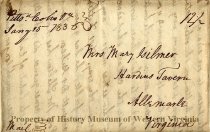 12½
Jany 15 1835
Mrs Mary Wilmer
Hardins Tavern
Albemarle
Virginia
Mail
Property of History Museum of Western Virginia